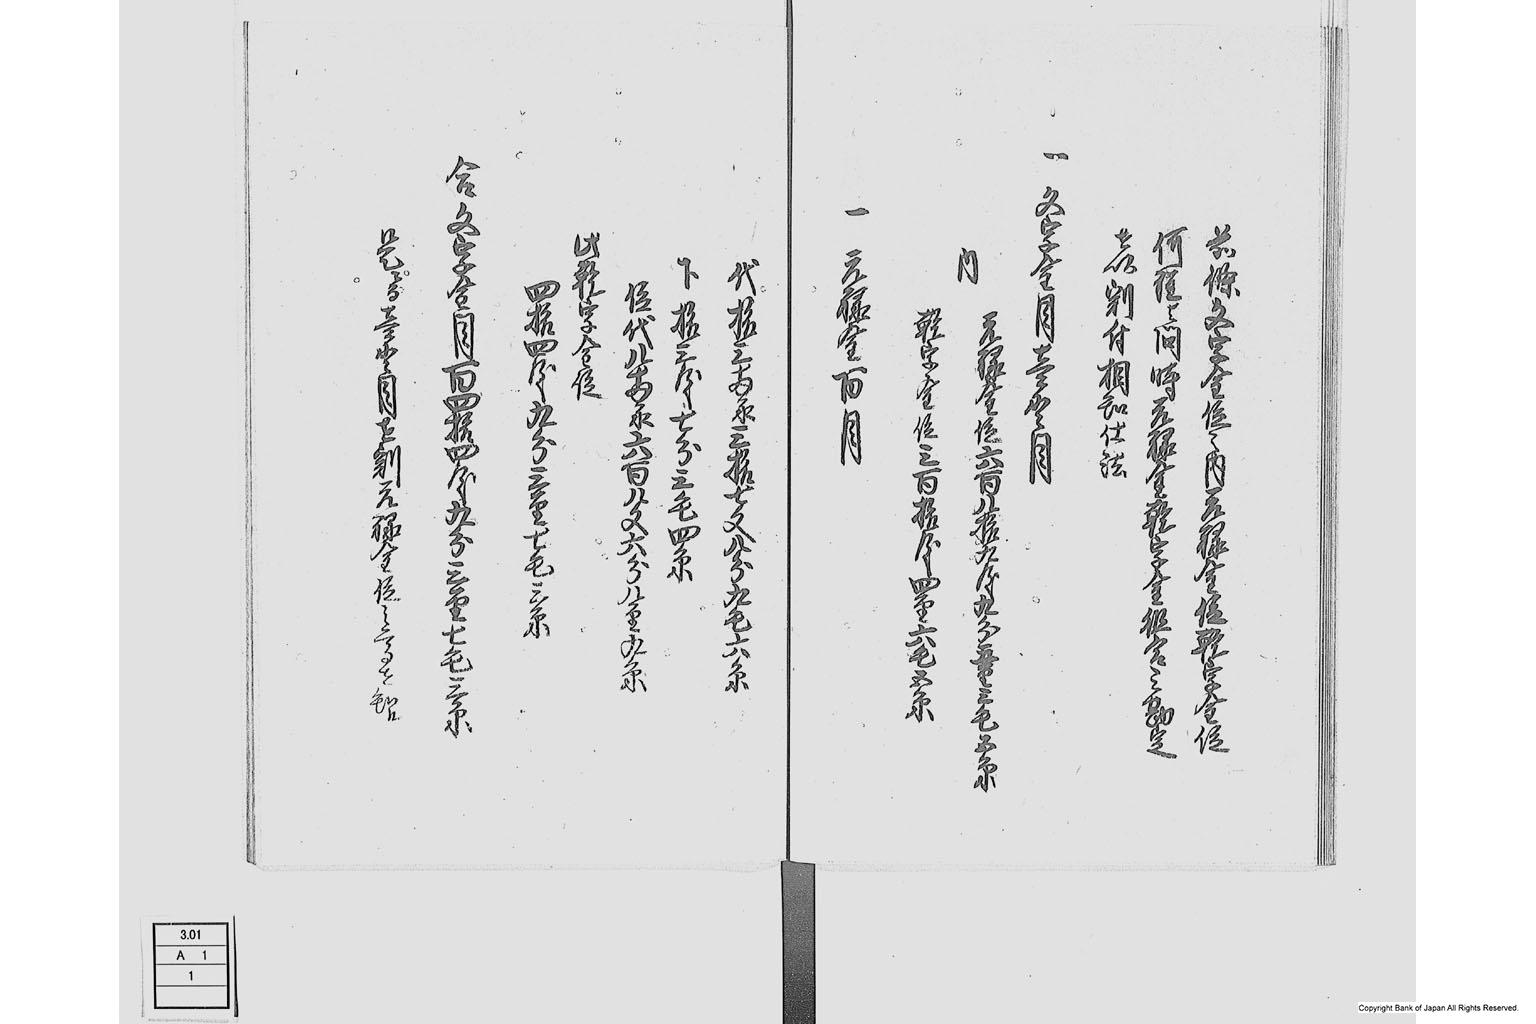 前條文字金位之内元禄金位乾字金位
何程と問時元禄金乾字金組合之勘定
を以割付相知仕法
一 文字金目壱貫目
内
元禄金位六百八拾九匁九分五厘三毛五糸
乾字金位三百拾匁四厘六毛五糸
一 元禄金百目
代拾三両永三拾七文八分九毛六糸
卜拾三匁七分三毛四糸
位代八両永六百八文六分八厘九糸
此乾字金位
四拾四匁九分三厘七毛三糸
合文字金目百四拾四匁九分三厘七毛三糸
是ニ而壱貫目を割元禄金位之高を知
3.01
A 1
1
Copyright Bank of Japan All Rights Reserved.